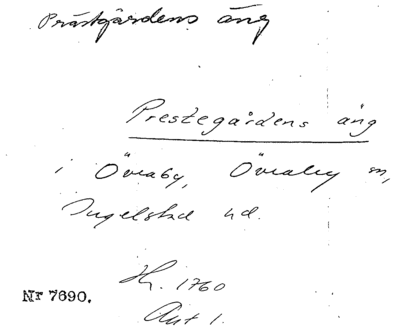 Prästgårdens äng
Prestegårdens äng
i Övraby, Övraby sn,
Ingelstad hd.
Hr. 1760
Nr 7690.
Akt 1.